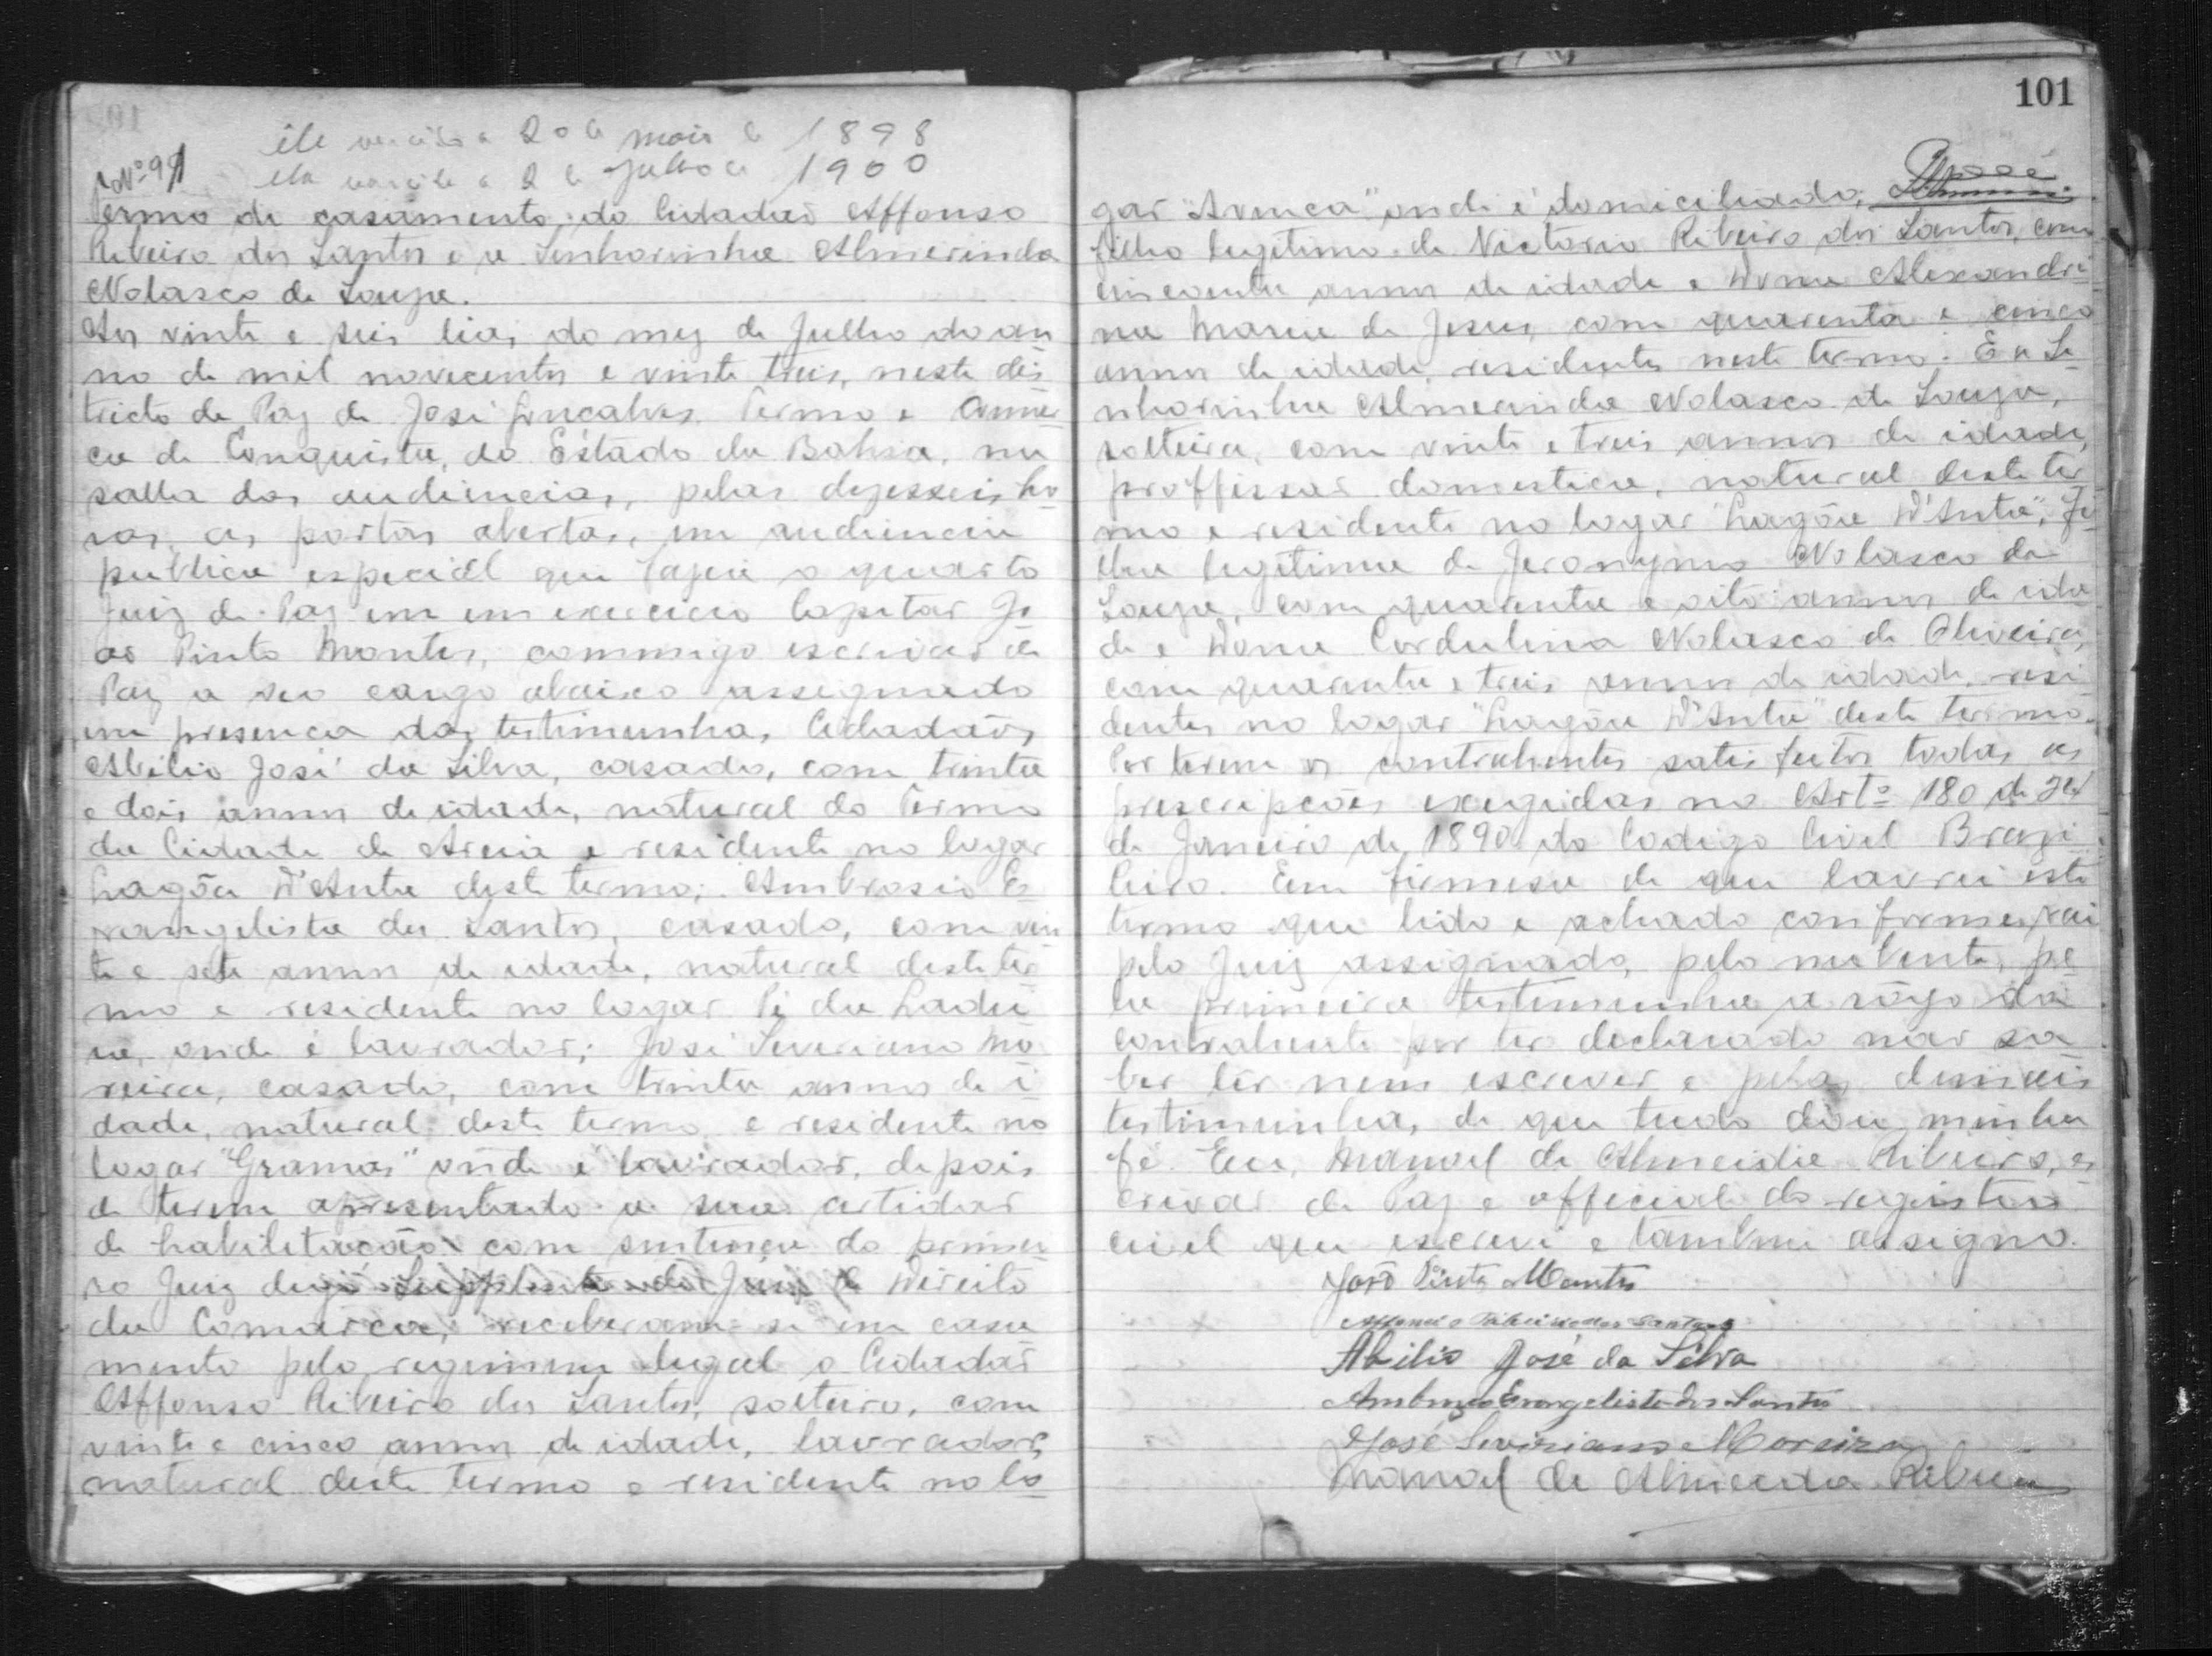 101
ele nascido a 20 de maio de 1898
ela nascida a 2 de Julho de 1900
Nº 99
Termo de casamento do Cidadão Affonso
Ribeiro dos Santos e a Senhorinha Almerinda
Nolasco de Souza.
Aos vinte e seis dias do mez de Julho do an
no de mil novecentos e vinte treis, neste dis
tricto de Paz de José Gonçalves Termo e Comar
ca de Conquista, do Estado da Bahia, na
salla das audiencias, pelas dezesseis ho
ras, as portas abertas, em audiencia
publica especial que fazia o quarto
Juiz de Paz em em exercicio Capitão Jo
ão Pinto Montes, commigo escrivão de
Paz a seo cargo abaixo assignado
em presença das testimunhas, Cidadãos
Abilio José da Silva, casado, com trinta
e dois annos de idade, natural do Termo
da Cidade de Areia e residente no logar
Lagôa D'Anta deste termo; Ambrosio E
vangelista dos Santos, casado, com vin
te e sete annos de idade, natural deste ter
mo e residente no logar Pé da Ladei
ra, onde é lavrador; José Severiano Mo
reira, casado, com trinta annos de i
dade, natural deste termo e residente no
logar "Gramas" onde é lavrador, depois
de terem apresentado a sua certidão
de habilitação com sentença do primei
ro Juiz Supplente do Juiz de Direito
da Comarca, receberam-se em casa
mento pelo regimem legal o Cidadão
Affonso Ribeiro dos Santos, solteiro, com
vinte e cinco annos de idade, lavrador,
natural deste termo e residente no lo
gar onde é domiciliado,
filho legitimo de Victorio Ribeiro dos Santos, com
cincoenta annos de idade e Dona Alexandri
na Maria de Jesus, com quarenta e cinco
annos de idade, residentes neste termo. E a Se
nhorinha Almerinda Nolasco de Souza,
solteira, com vinte e treis annos de idade,
proffissão domestica, natural deste ter
mo e residente no logar "Lagôa D'Anta", fi
lha legitima de Jeronymo Nolasco de
Souza, com quarenta e oito annos de ida
de e Dona Cordulina Nolasco de Oliveira,
com quarenta e treis annos de idade, resi
dentes no logar "Lagôa D'Anta" deste termo.
Por terem os contrahentes satisfeitos todas as
prescripções exigidas no Artº 180 de 24
de Janeiro de 1890 do Codigo Civel Brazi
leiro. Em firmesa de que lavrei este
termo que lido e achado conforme, vai
pelo Juiz assignado, pelo nubente, pe
la primeira testimunha a rôgo da
contrahente por ter declarado não sa
ber lêr nem escrever e pelas demais
testimunhas, de que tudo dou minha
fé. Eu, Manoel de Almeida Ribeiro, es
crivão de Paz e official do registro
civel que escrevi e tambem assigno.
João Pinto Montes
Affonso Ribeiro dos Santos
Abilio José da Silva
Ambrozio Evangelista dos Santos
José Siviriano Moreira
Manoel de Almeida Ribeiro